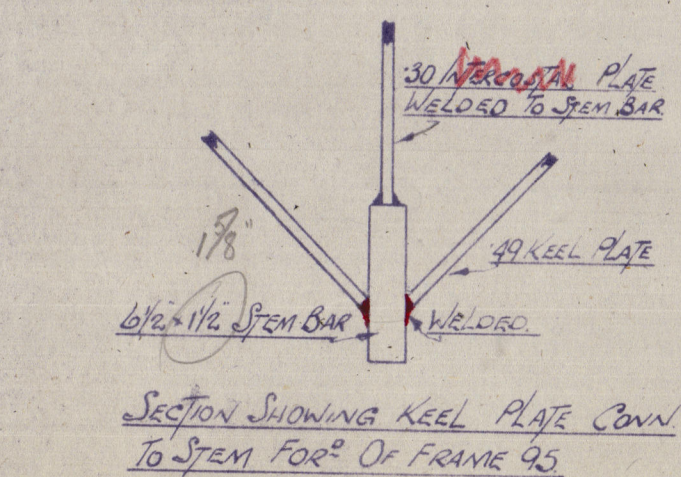 .30 INTERCOSTAL PLATE
WELDED TO STEM BAR.
1 5/8"
.49 KEEL PLATE
6 1/2" × 1 1/2" STEM BAR
WELDED.
SECTION SHOWING KEEL PLATE CONN.
TO STEM FORD OF FRAME 95.